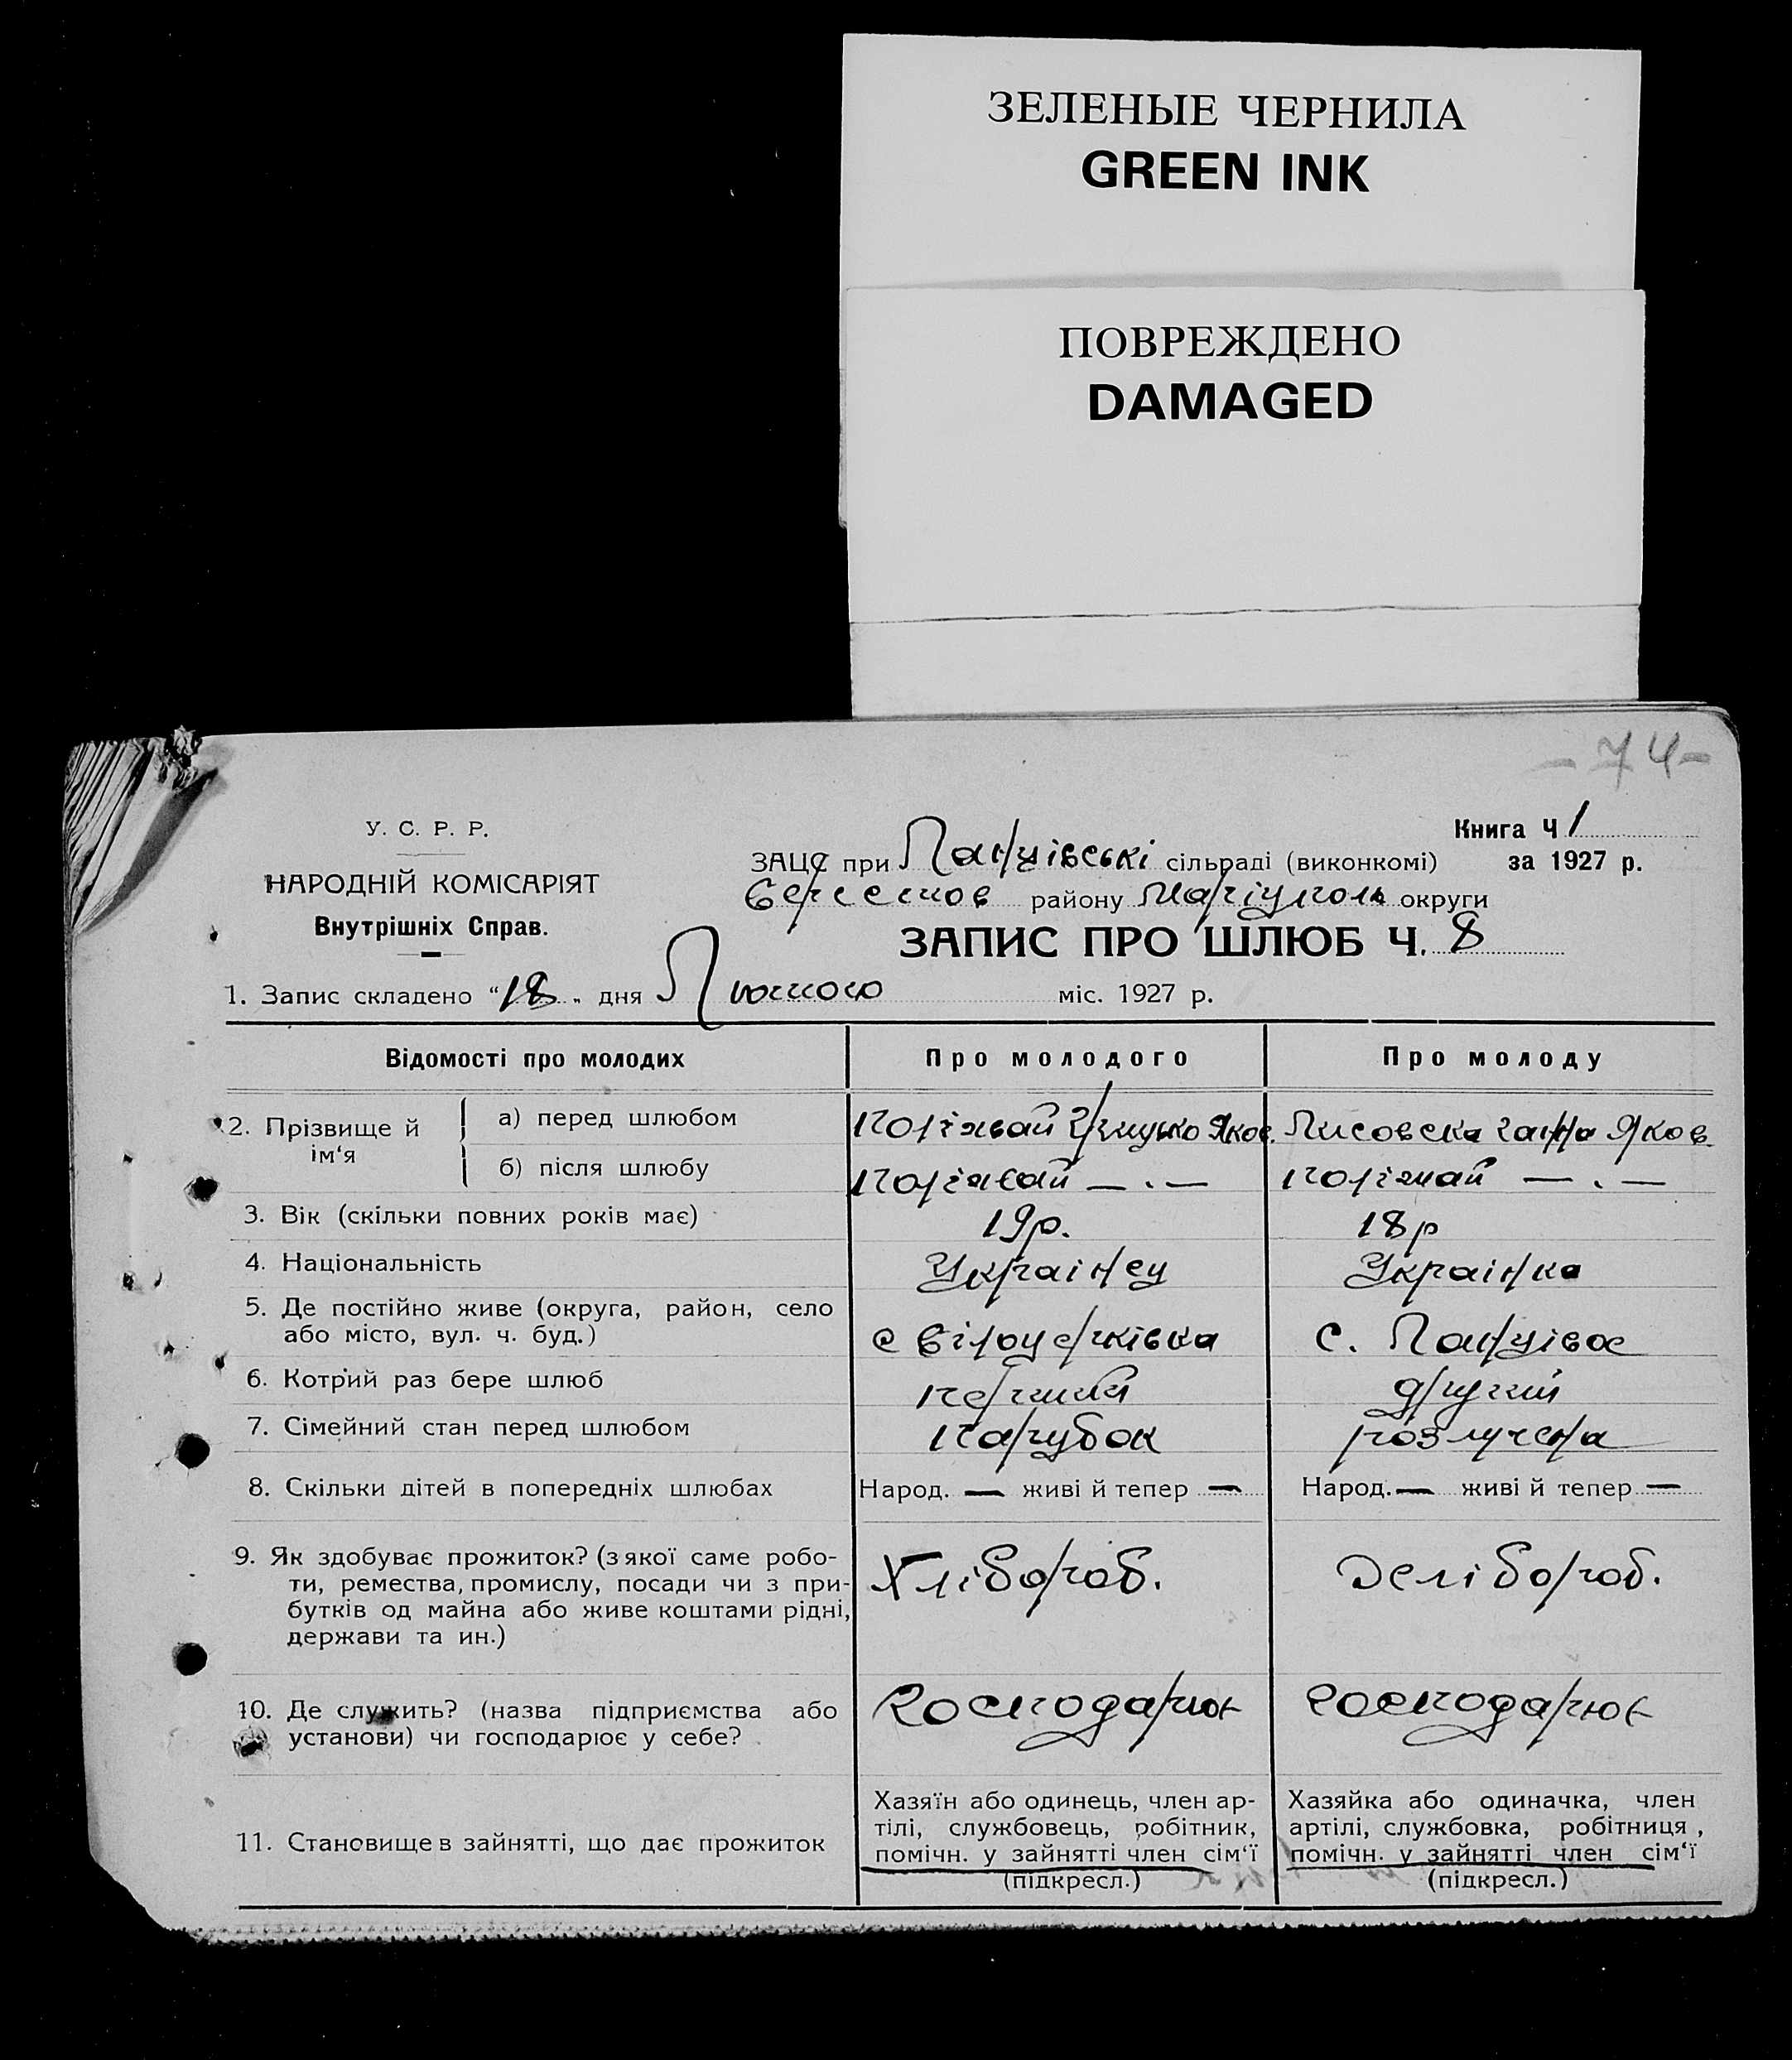 ЗЕЛЕНЫЕ ЧЕРНИЛА
GREEN INK
ПОВРЕЖДЕНО
DAMAGED
-74-
У. С. Р. Р.
НАРОДНІЙ КОМІСАРІЯТ
Внутрішніх Справ.
Книга Ч 1
за 1927 р.
ЗАЦС при Панцівські сільраді (виконкомі)
району Маріуполь округи
ЗАПИС ПРО ШЛЮБ Ч. 8
1. Запис складено "18" дня Лютого міс. 1927 р.
Відомості про молодих Про молодого Про молоду
2. Прізвище й ім'я
а) перед шлюбом Грицько Яков. Лисовска Ганна Яков.
б) після шлюбу — . — — . —
3. Вік (скільки повних років має) 19р. 18р
4. Національність Українец Українка
5. Де постійно живе (округа, район, село
або місто, вул. ч. буд.) с Білоцерківка с. Панцівка
6. Котрий раз бере шлюб первий другий
7. Сімейний стан перед шлюбом парубок розлучена
8. Скільки дітей в попередніх шлюбах Народ. — живі й тепер — Народ. — живі й тепер —
9. Як здобуває прожиток? (з якої саме робо-
ти, ремества, промислу, посади чи з при-
бутків од майна або живе коштами рідні,
держави та ин.) Хлібороб. Хлібороб.
10. Де служить? (назва підприємства або
установи) чи господарює у себе? Господарює господарює
11. Становище в зайнятті, що дає прожиток
Хазяїн або одинець, член ар-
тілі, службовець, робітник,
помічн. у зайнятті член сім'ї
(підкресл.)
Хазяйка або одиначка, член
артілі, службовка, робітниця,
помічн. у зайнятті член сім'ї
(підкресл.)